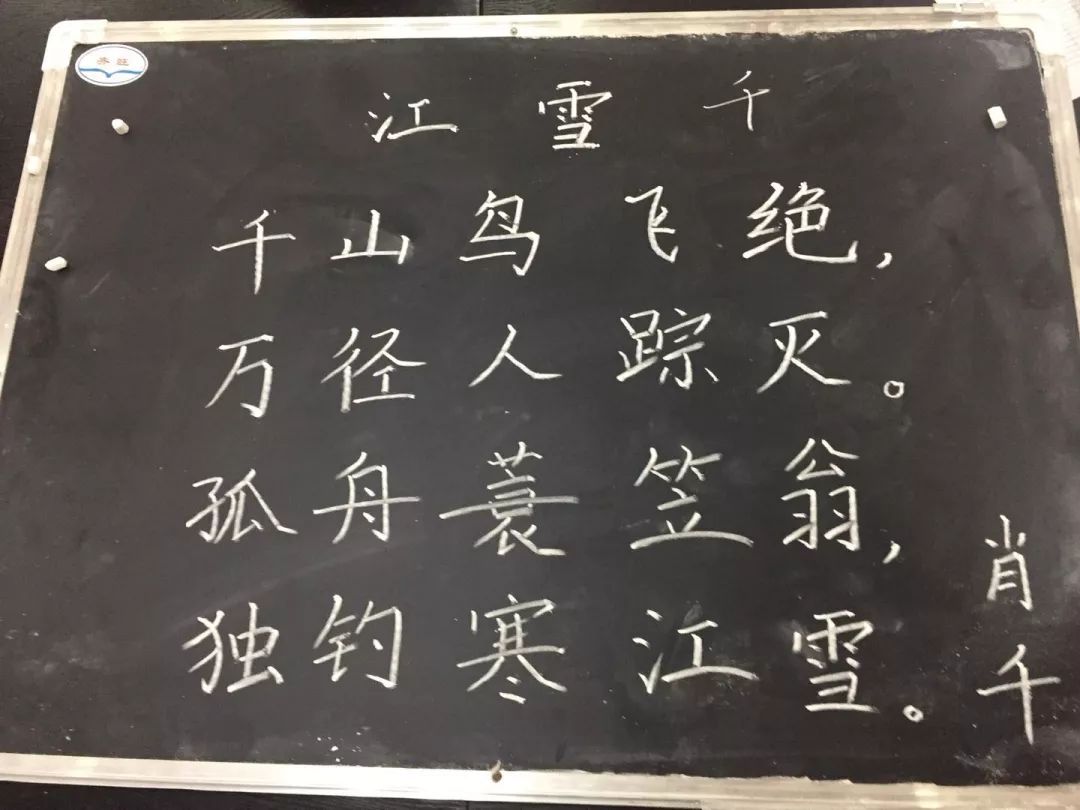 齐旺
江雪千
千山鸟飞绝,
万径人踪灭。
孤舟蓑笠翁,
独钓寒江雪。
肖千